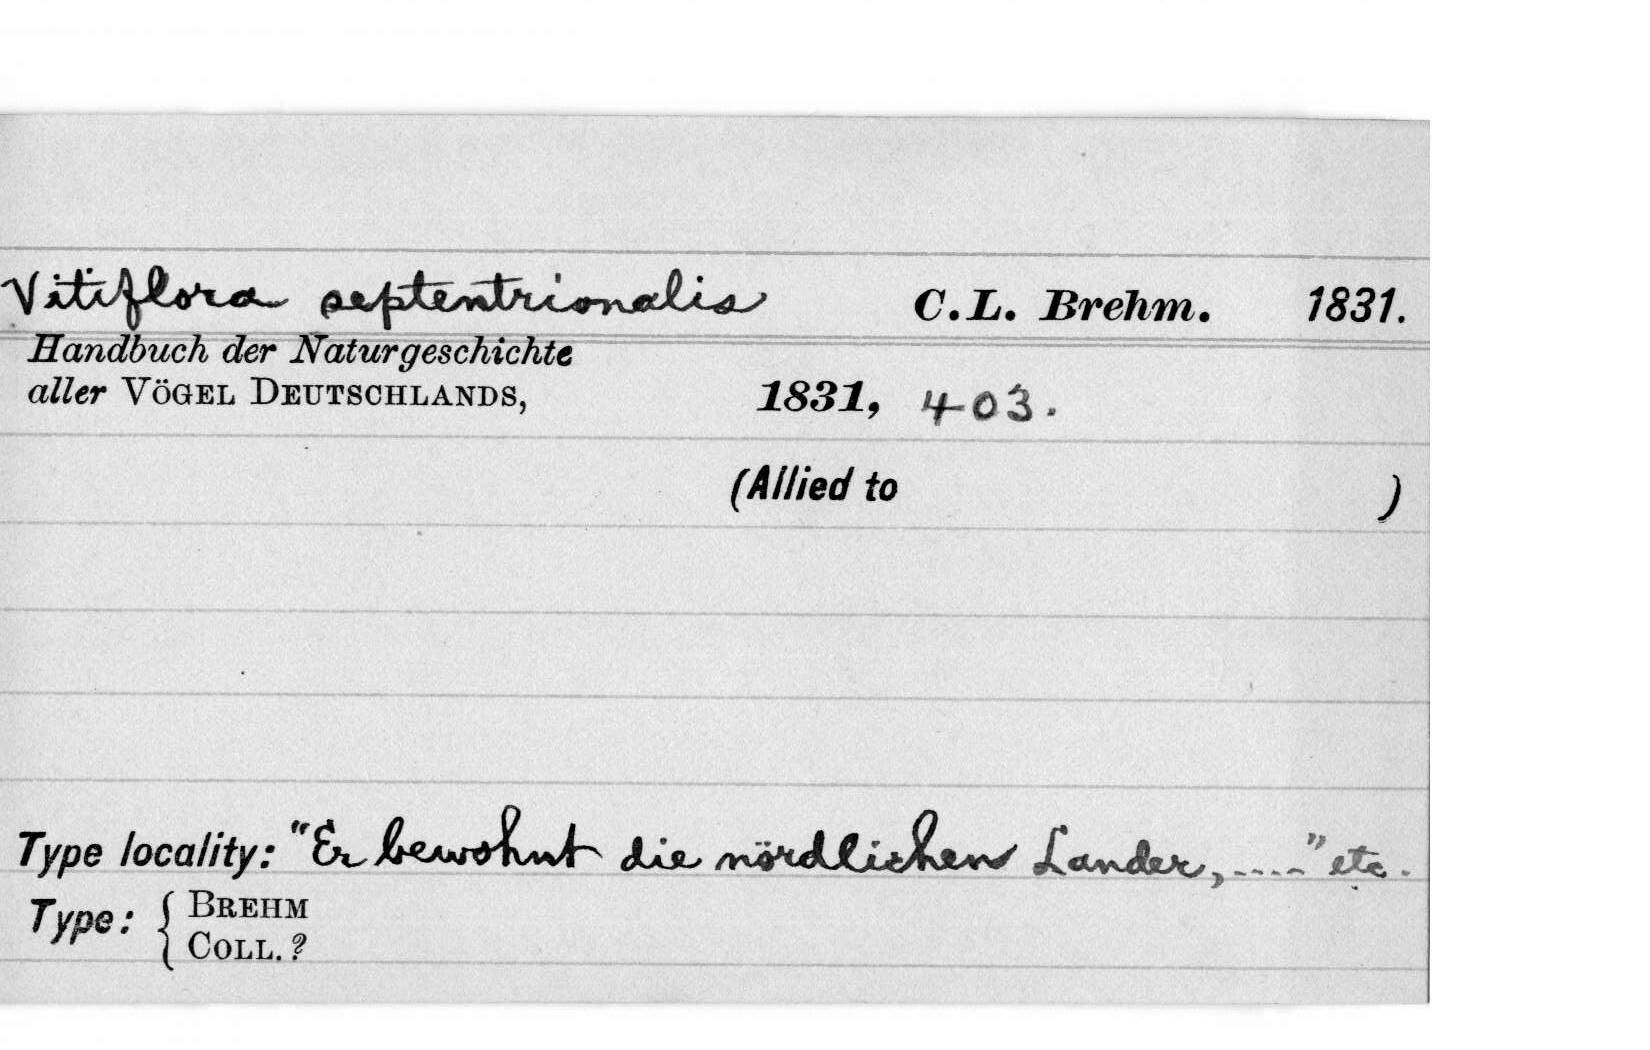 Vitiflora septentrionalis C.L. Brehm. 1831.
Handbuch der Naturgeschichte
aller VÖGEL DEUTSCHLANDS, 1831, 403.
(Allied to )
Type locality: "Er bewohnt die nördlichen Lander, ....." etc.
Type: { BREHM
COLL. ?